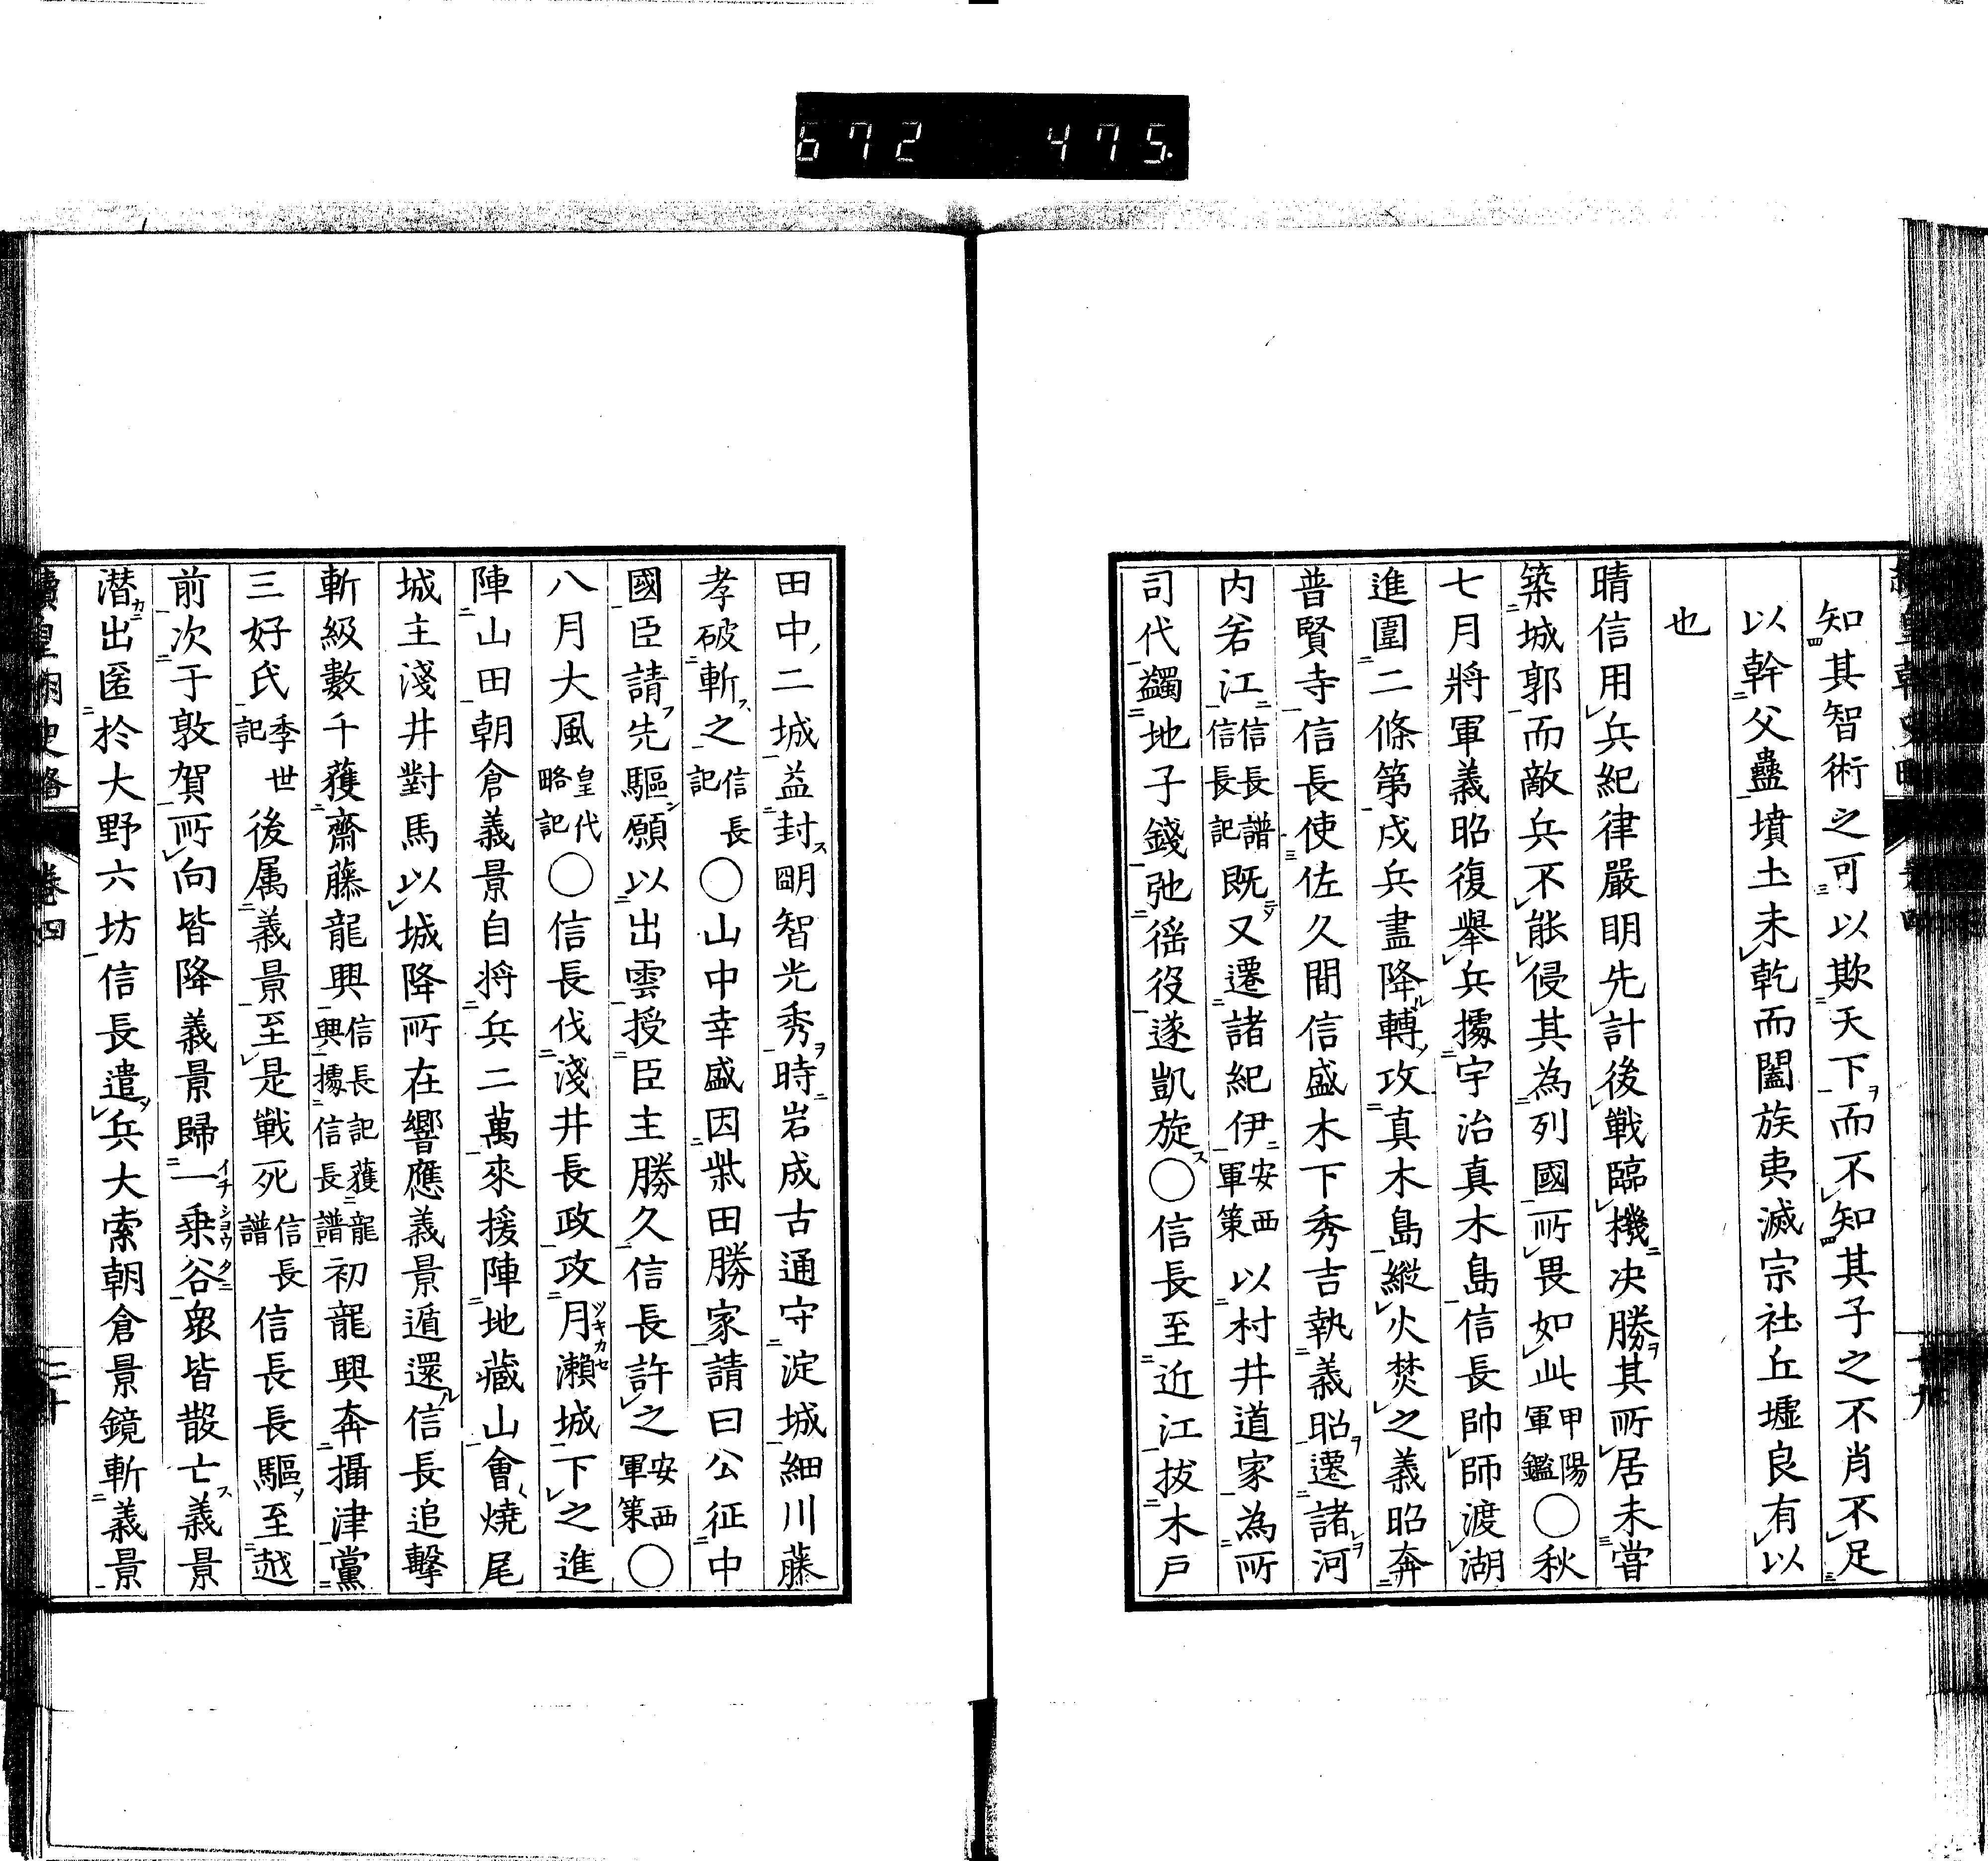 672 475.
知其智術之可以欺天下而不知其子之不肖不足
以幹父蠱墳土未乾而闔族夷滅宗社丘墟良有以
也
晴信用兵紀律嚴明先計後戰臨機决勝其所居未嘗
築城郭而敵兵不能侵其為列國所畏如此甲陽軍鑑○秋
七月將軍義昭復舉兵據宇治真木島信長帥師渡湖
進圍二條第戍兵盡降轉攻真木島縱火焚之義昭奔
普賢寺信長使佐久間信盛木下秀吉執義昭遷諸河
内若江信長譜信長記既又遷諸紀伊安西軍策以村井道家為所
司代蠲地子錢弛徭役遂凱旋○信長至近江拔木戸
田中二城益封明智光秀時岩成古通守淀城細川藤
孝破斬之信長記○山中幸盛因柴田勝家請曰公征中
國臣請先驅願以出雲授臣主勝久信長許之安西軍策○
八月大風皇代略記○信長伐淺井長政攻月瀬城下之進
陣山田朝倉義景自將兵二萬來援陣地藏山會燒尾
城主淺井對馬以城降所在響應義景遁還信長追擊
斬級數千獲齋藤龍興信長記獲龍興據信長譜初龍興奔攝津黨
三好氏季世記後属義景至是戰死信長譜信長長驅至越
前次于敦賀所向皆降義景歸一乗谷衆皆散亡義景
潜出匿於大野六坊信長遣兵大索朝倉景鏡斬義景
續皇朝史略 卷四 二十